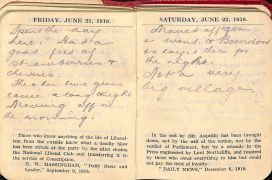 FRIDAY, JUNE 21, 1918.
Spent the day
here. Had a
good feed of
strawberries &
cherries.
the
came
Moving off in
the morning.
Those who know anything of the life of Liberal-
ism from the outside know what a deadly blow
has been struck at the party by the elict closing
the National Liberal Club and transferring it to
the service of Conscription.
H. W. MASSINGHAM, "Daily News and
Leader," September 9, 1916.
SATURDAY, JUNE 22, 1918.
Moved off again
& went to
stayed there for
the night.
Not a very
big village.
In the end he (Mr. Asquith) has been brought
down, not by the will of the nation, not by the
verdict of Parliament, but by a assault in the
Press engineered by Lord Northcliffe, and inspired
by those who owed everything to him but could
not pay the debt of loyalty.
"DAILY NEWS," December 6, 1916.